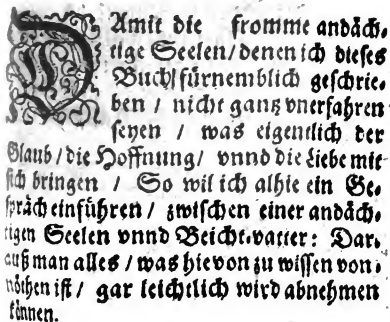 DAmit die fromme andäch-
tige Seelen / denen ich dieses
Buch / fürnemblich geschrie-
ben / nicht gantz vnerfahren
seyen / was eigentlich der
Glaub / die Hoffnung / vnnd die Liebe mit
sich bringen / So wil ich alhie ein Ge-
spräch einführen / zwischen einer andäch-
tigen Seelen vnnd Beicht-vatter: Dar-
auß man alles / was hievon zu wissen von-
nöthen ist / gar leichtlich wird abnehmen
können.